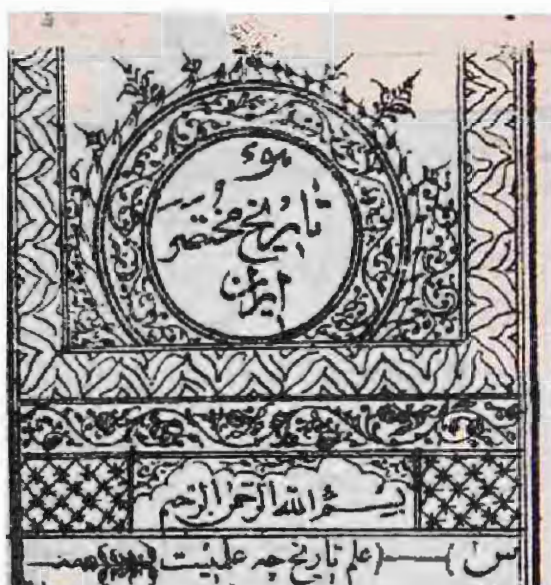 هو
تاریخ مختصر
ایران
بسم الله الرحمن الرحیم
س) (علم تاریخ چه علمیست